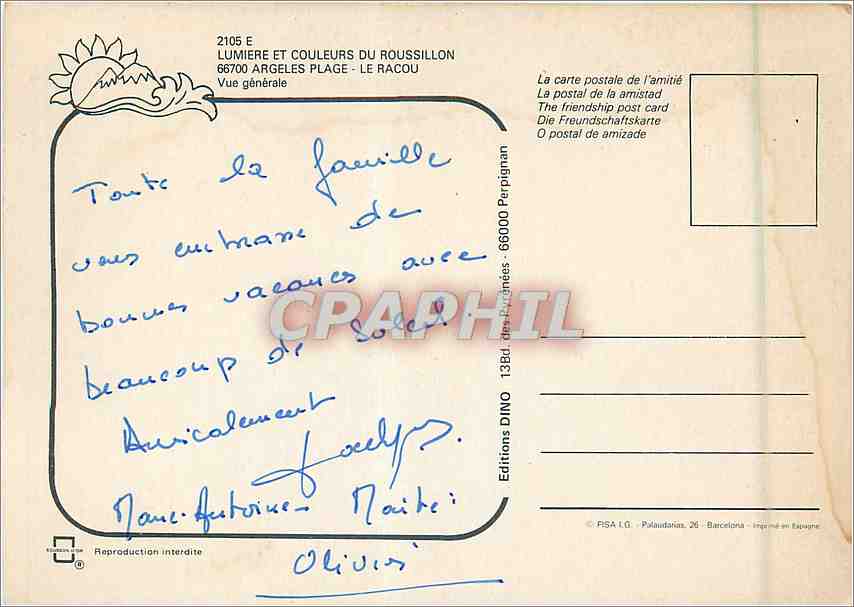 2105 E
LUMIERE ET COULEURS DU ROUSSILLON
66700 ARGELES PLAGE - LE RACOU
Vue générale
Toute la famille
vous embrasse de
bonnes vacances avec
beaucoup de soleil.
Amicalement
Marc-Antoine - Maïté.
Olivier
Reproduction interdite
Editions DINO 13Bd. des Pyrénées - 66000 Perpignan
La carte postale de l'amitié
La postal de la amistad
The friendship post card
Die Freundschaftskarte
O postal de amizade
© FISA I.G. - Palaudarias, 26 - Barcelona - Imprimé en Espagne
CPAPHIL